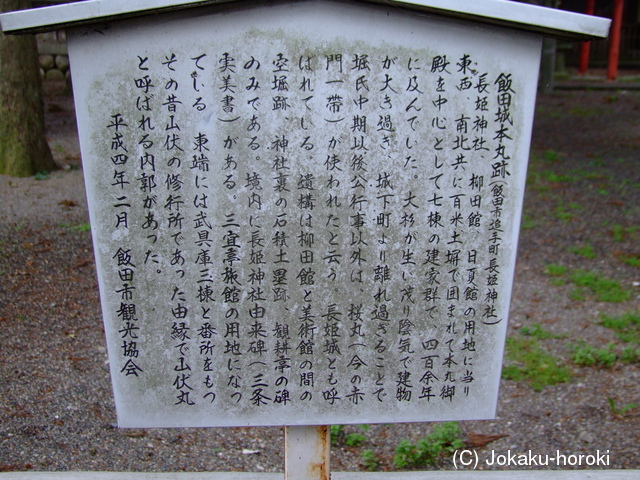 飯田城本丸跡(飯田市追手町長姫神社)
長姫神社、柳田館、日夏館の用地に当り
東西、南北共に百米土塀で囲まれて本丸御
殿を中心として七棟の建家群で、四百余年
に及んでいた。大杉が生い茂り陰気で建物
が大き過ぎ、城下町より離れ過ぎることで
堀氏中期以後公行事以外は、桜丸(今の赤
門一帯)が使われたと云う。長姫城とも呼
ばれている。遺構は柳田館と美術館の間の
空堀跡、神社裏の石積土塁跡、観耕亭の碑
のみである。境内に長姫神社由来碑(三条
実美書)がある。三宜亭旅館の用地になつ
ている。東端には武具庫三棟と番所をもつ
その昔山伏の修行所であった由縁で山伏丸
と呼ばれる内郭があった。
平成四年二月 飯田市観光協会
(C) Jokaku-horoki